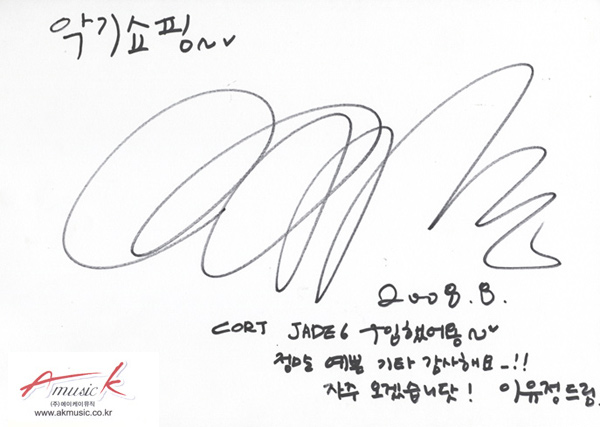 악기쇼핑~♥
2008.8.
CORT JADE6 구입했어용~♥
정말 예쁜 기타 감사해요~!!
자주 오겠습니닷! 이유정드림.
A music K
(주)에이케이뮤직
www.akmusic.co.kr